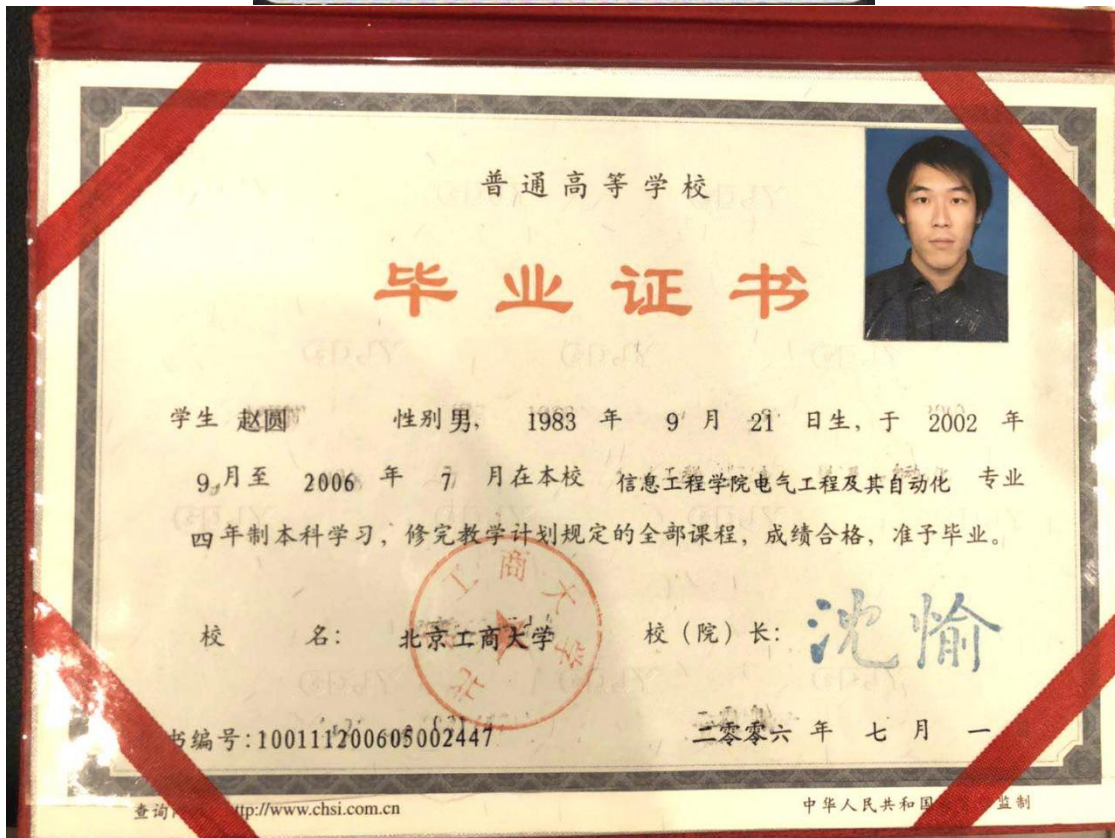 普通高等学校
毕业证书
学生 赵圆 性别 男, 1983 年 9 月 21 日生, 于 2002 年
9 月至 2006 年 7 月在本校 信息工程学院电气工程及其自动化 专业
四年制本科学习, 修完教学计划规定的全部课程, 成绩合格, 准予毕业。
校 名: 北京工商大学 校（院）长: 沈愉
北 工商大学
书编号:100111200605002447 二零零六 年 七 月 一
查询 tp://www.chsi.com.cn 中华人民共和国 监制